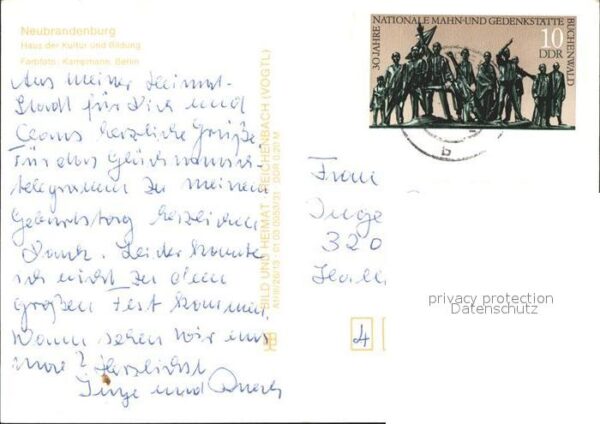 Neubrandenburg
Haus der Kultur und Bildung
Farbfoto: Kampmann, Berlin
Aus meiner Heimat-
stadt für Dich und
Claus herzliche Grüße
Für das Glückwunsch-
telegramm zu meinem
Geburtstag herzlichen
Dank. Leider konnte
ich nicht zu dem
großen Fest kommen.
Wann sehen wir uns
mal? Herzlichst
Inge und
BILD UND HEIMAT REICHENBACH (VOGTL)
30 JAHRE NATIONALE MAHN-UND GEDENKSTÄTTE BUCHENWALD
10
DDR
b
Frau
Inge
320
Hal
4
privacy protection
Datenschutz